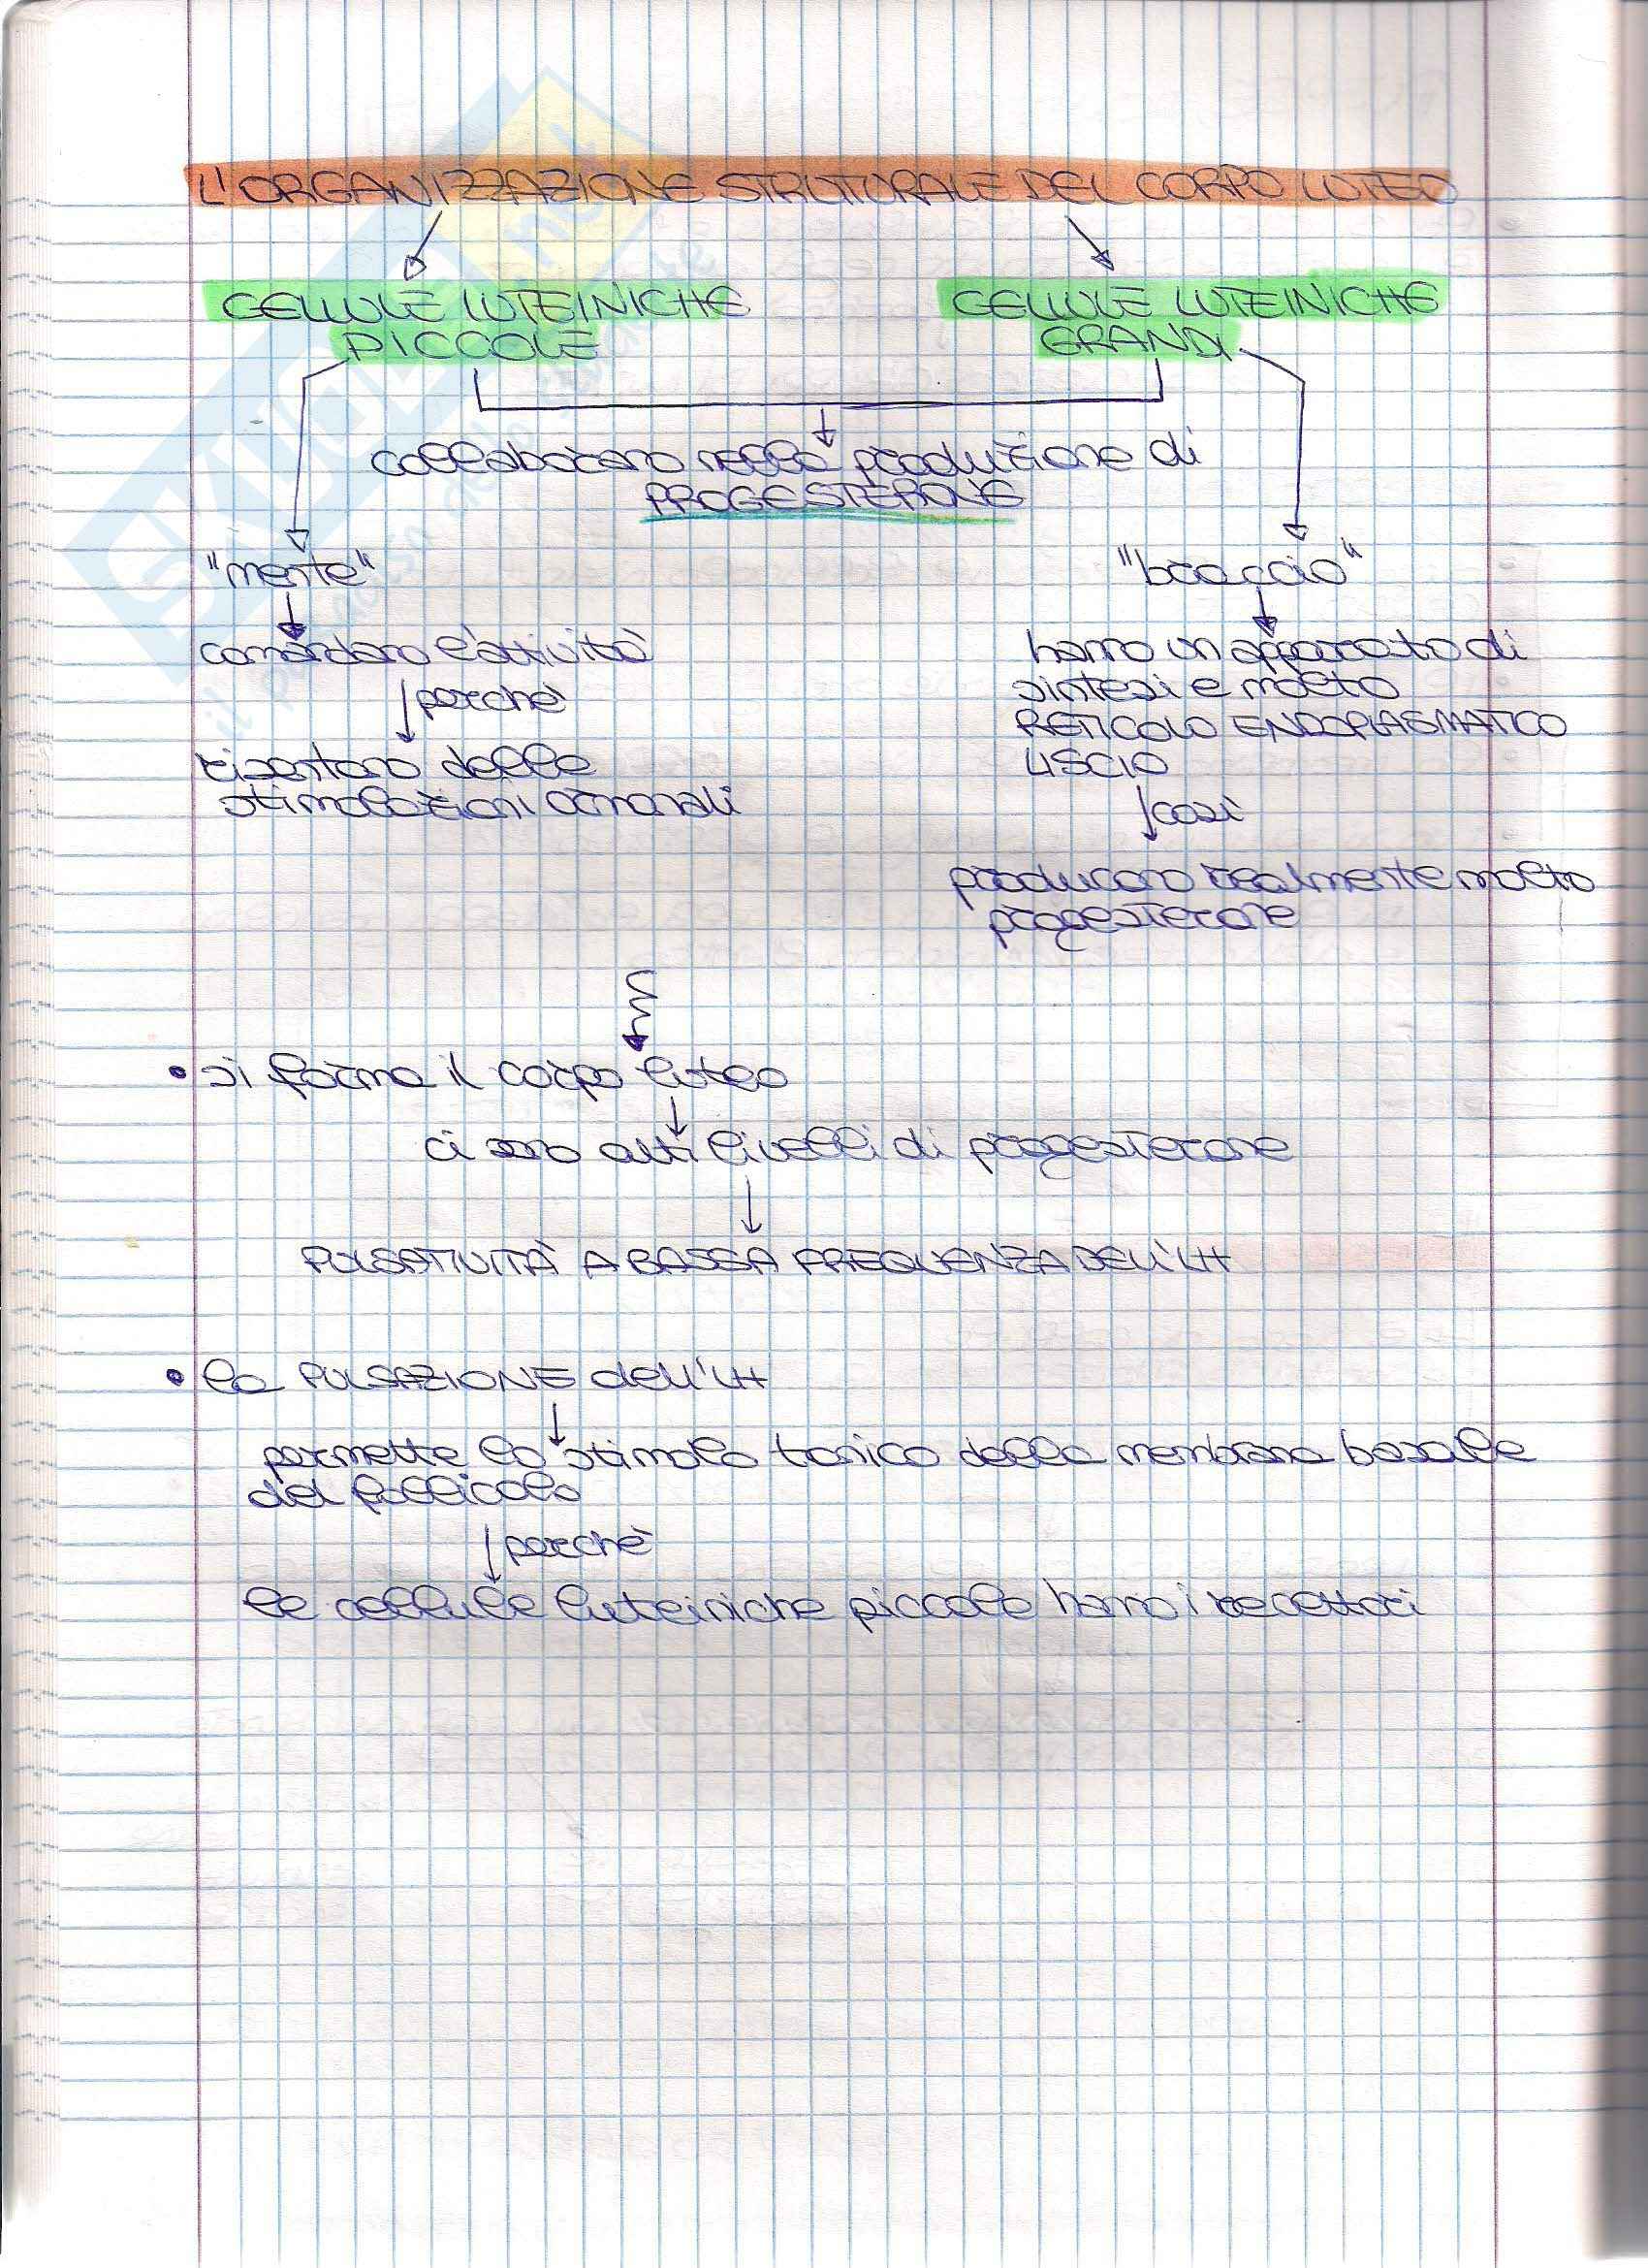 L'ORGANIZZAZIONE STRUTTURALE DEL CORPO LUTEO
CELLULE LUTEINICHE
PICCOLE
CELLULE LUTEINICHE
GRANDI
collaborano nella produzione di
PROGESTERONE
"mente"
comandano l'attività
perchè
risentono delle
stimolazioni ormonali
"braccio"
hanno un apparato di
sintesi e molto
RETICOLO ENDOPLASMATICO
LISCIO
così
producono realmente molto
progesterone
• si forma il corpo luteo
ci sono alti livelli di progesterone
PULSATIVITÀ A BASSA FREQUENZA DELL'LH
• la PULSAZIONE dell'LH
permette lo stimolo tonico della membrana basale
del follicolo
perchè
le cellule luteiniche piccole hanno i recettori
SKUOLA.net
il paradiso dello studente